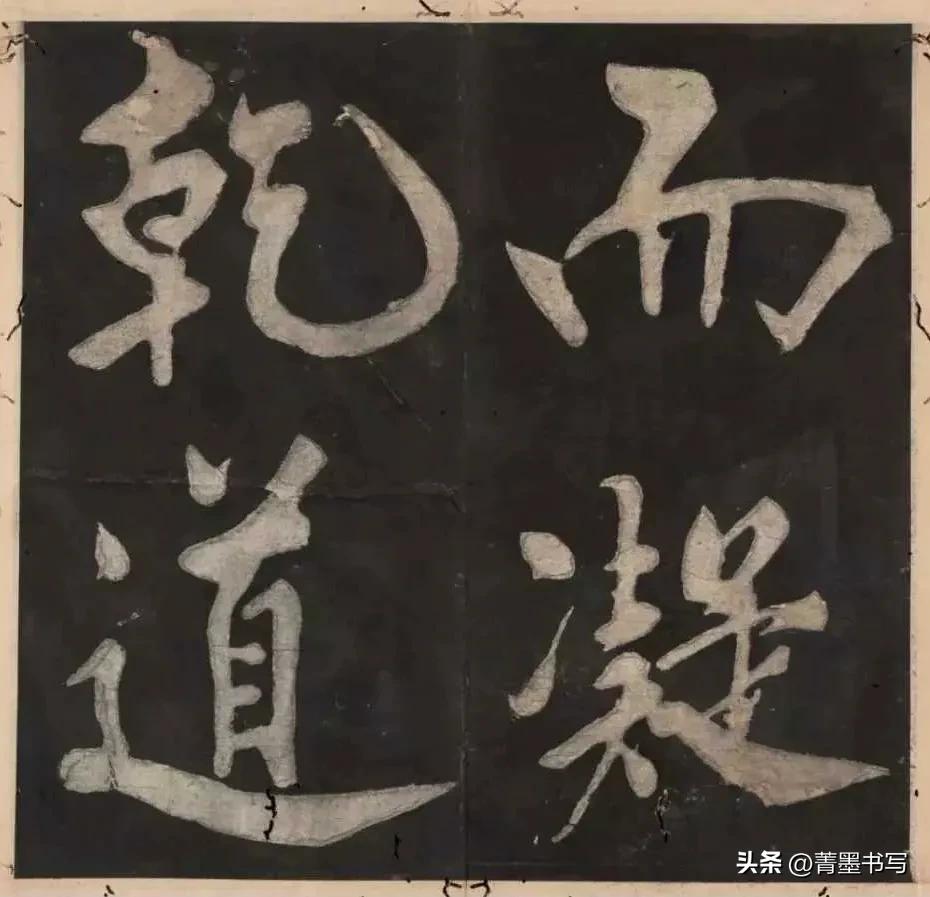 而凝
乾道
头条 @菁墨书写